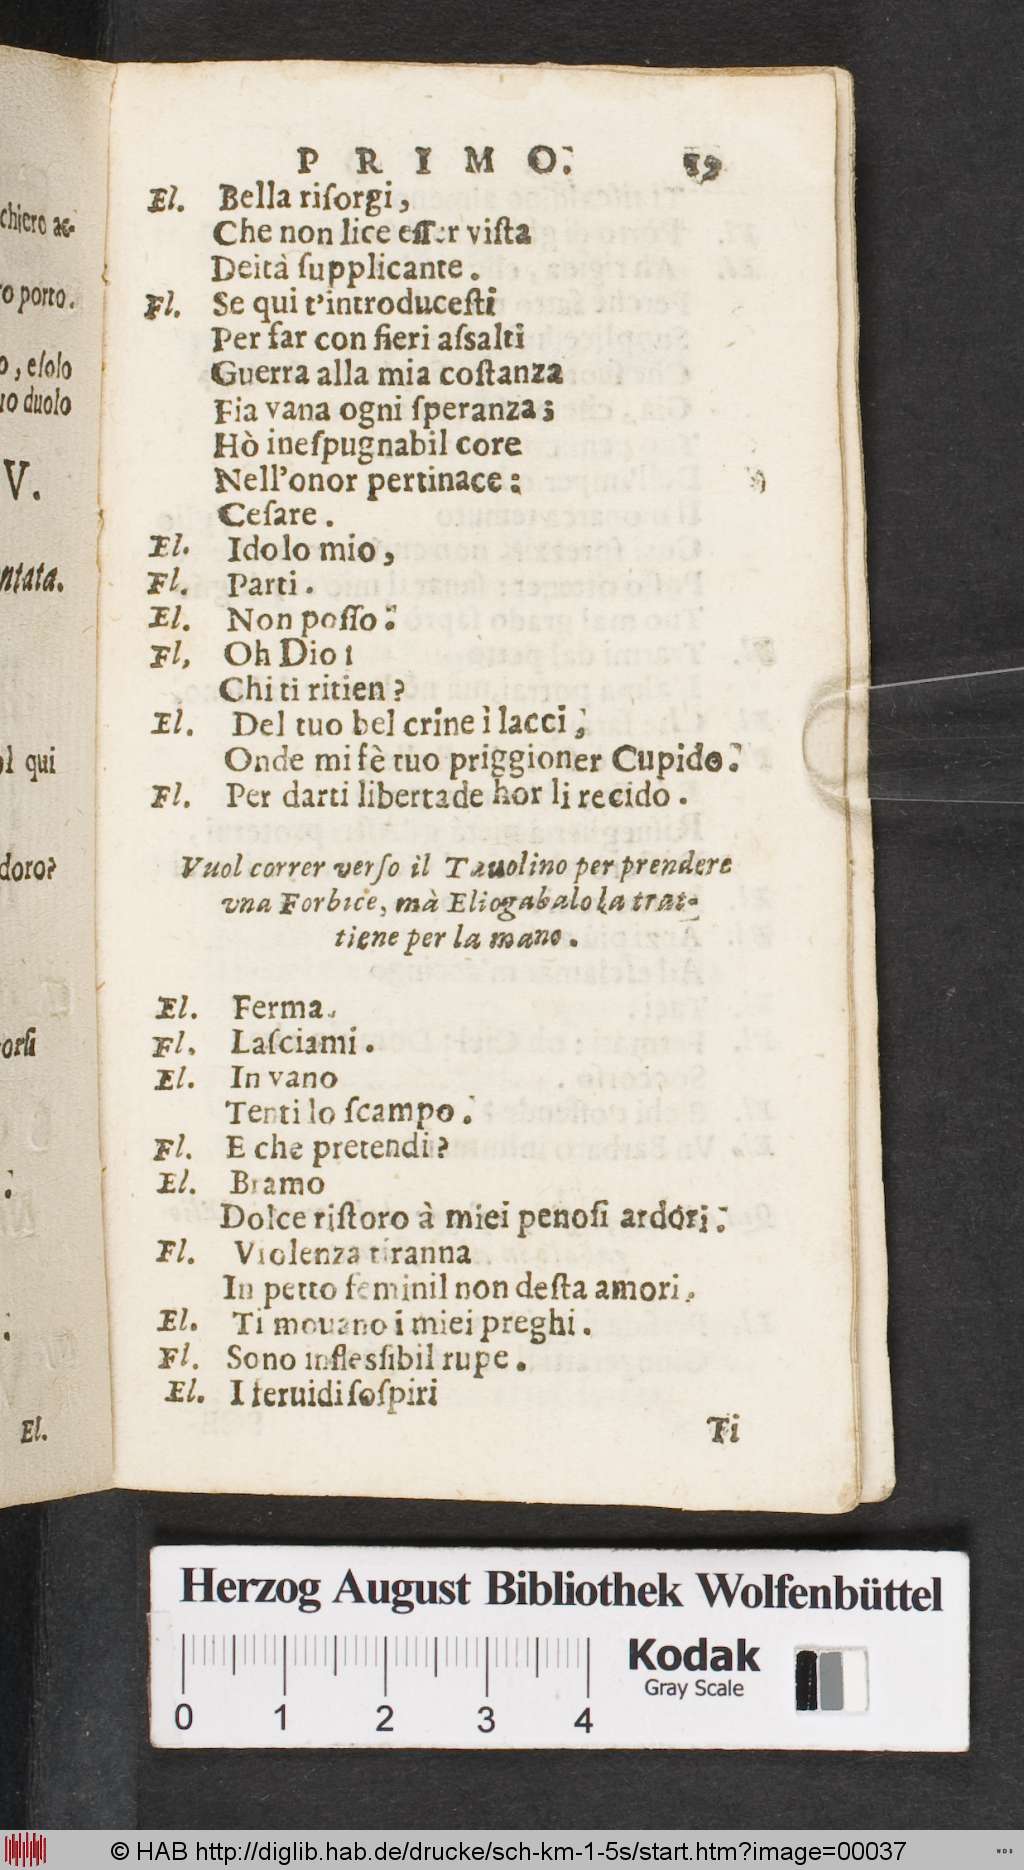 chiero ac-
ro porto.
o, e ſolo
uo duolo
V.
ntata.
ol qui
doro?
orſi
El.
PRIMO.
El. Bella riſorgi,
Che non lice eſſer viſta
Deità ſupplicante.
Fl. Se qui t'introduceſti
Per far con fieri aſsalti
Guerra alla mia coſtanza
Fia vana ogni ſperanza;
Hò ineſpugnabil core
Nell'onor pertinace:
Ceſare.
El. Idolo mio,
Fl. Parti.
El. Non poſſo:
Fl, Oh Dio!
Chi ti ritien?
El. Del tuo bel crine ì lacci,
Onde mi fè tuo priggioner Cupido.
Fl. Per darti libertade hor li recido.
Vuol correr verſo il Tauolino per prendere
vna Forbice, mà Eliogabalo la trat-
tiene per la mano.
El. Ferma.
Fl. Laſciami.
El. In vano
Tenti lo ſcampo.
Fl. E che pretendi?
El. Bramo
Dolce riſtoro à miei penoſi ardori.
Fl. Violenza tiranna
In petto feminil non deſta amori.
El. Ti mouano i miei preghi.
Fl. Sono infleſsibil rupe.
El. I feruidi ſoſpiri
Ti
Herzog August Bibliothek Wolfenbüttel
Kodak
Gray Scale
0 1 2 3 4
© HAB http://diglib.hab.de/drucke/sch-km-1-5s/start.htm?image=00037